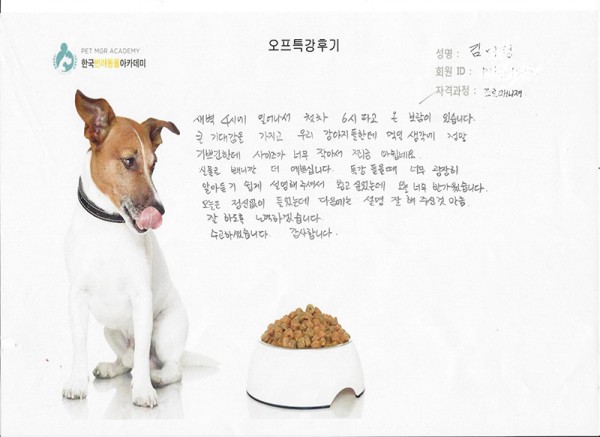 PET MGR ACADEMY
한국반려동물아카데미
오프특강후기
성명 : 김
회원 ID :
자격과정 : 펫매니저
새벽 4시에 일어나서 첫차 6시 타고 온 보람이 있습니다.
큰 기대감을 가지고 우리 강아지들한테 먹일 생각에 정말
기쁘긴한데 사이즈가 너무 작아서 쪼금 아쉽네요.
실물로 배니깐 더 예쁘십니다. 특강 들을때 너무 굉장히
알아듣기 쉽게 설명해 주셔서 보고 싶었는데 너무 반가웠습니다.
오늘은 정신없이 들었는데 다음에는 설명 잘 해 주신것 만큼
잘 하도록 노력하겠습니다.
수고하셨습니다. 감사합니다.